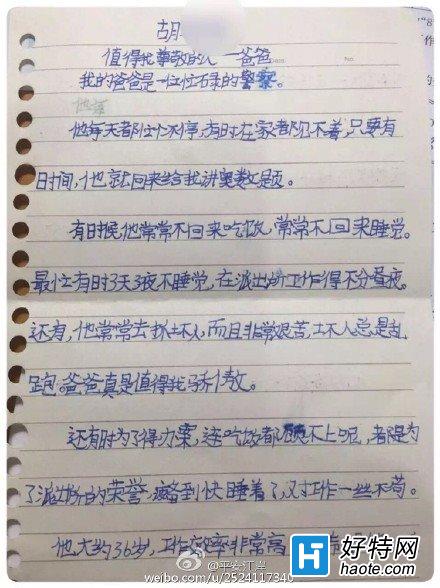 胡
值得我尊敬的人 — 爸爸
我的爸爸是一位忙碌的警察。
他每
他每天都忙不停，有时在家都见不着，只要有
时间，他就回来给我讲奥数题。
有时候，他常常不回来吃饭，常常不回来睡觉。
最忙有时3天3夜不睡觉，在派出所工作得不分昼夜。
还有，他常常去抓坏人，而且非常艰苦，坏人总是乱
跑。爸爸真是值得我骄傲。
还有时为了得办案，连吃饭都顾不上呢，都是为
了派出所的荣誉，瘾到快睡着了，对工作一丝不苟。
他大约36岁，工作效率非常高
@平安江岸
weibo.com/u/2524117340
H 好特网
haote.com